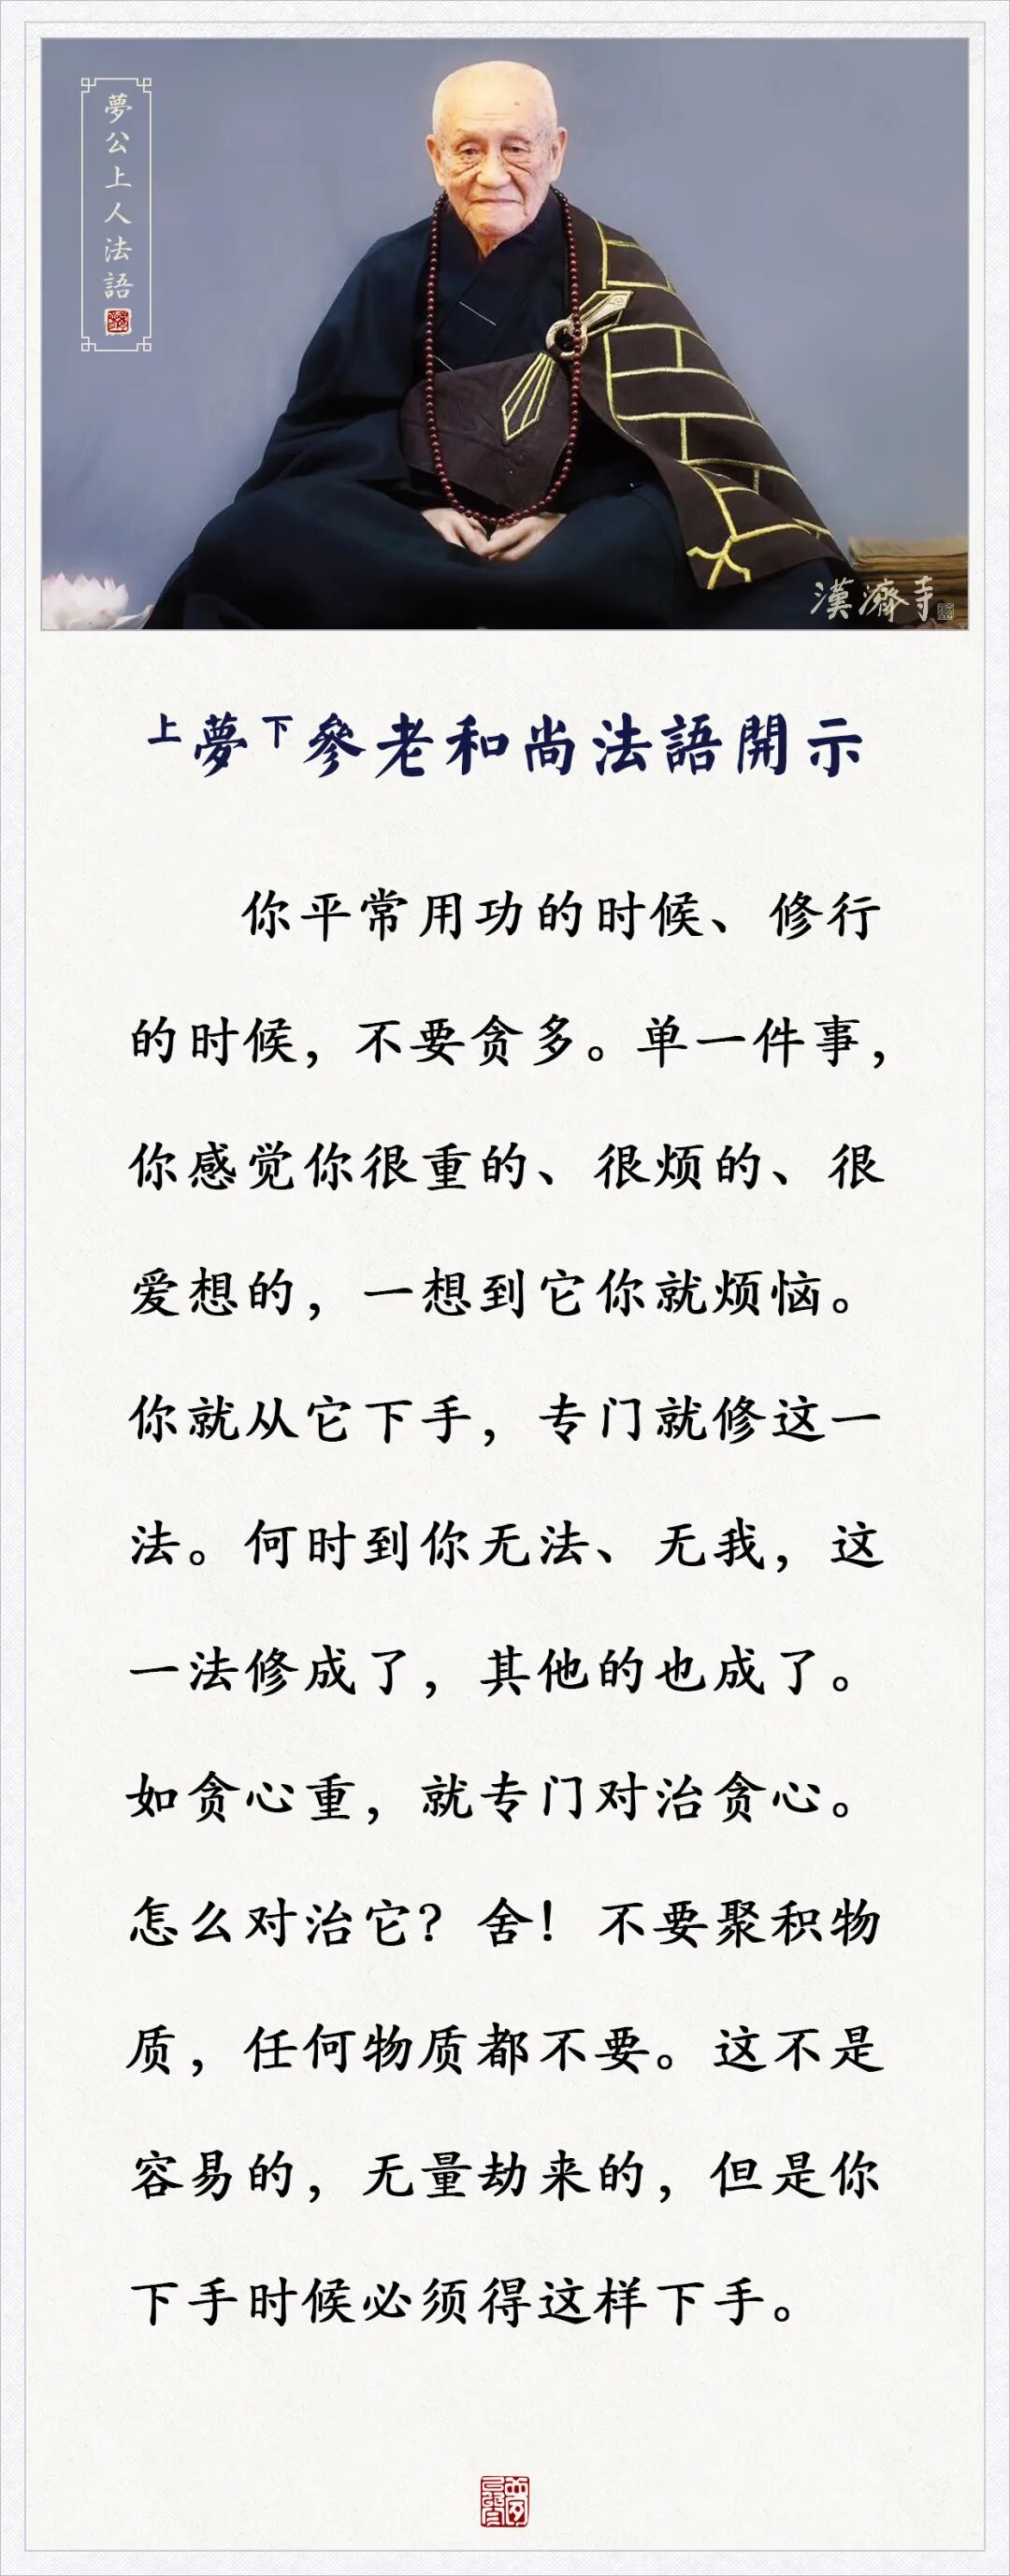 夢公上人法語
漢濟寺
上夢下參老和尚法語開示
你平常用功的时候、修行
的时候，不要贪多。单一件事，
你感觉你很重的、很烦的、很
爱想的，一想到它你就烦恼。
你就从它下手，专门就修这一
法。何时到你无法、无我，这
一法修成了，其他的也成了。
如贪心重，就专门对治贪心。
怎么对治它？舍！不要聚积物
质，任何物质都不要。这不是
容易的，无量劫来的，但是你
下手时候必须得这样下手。